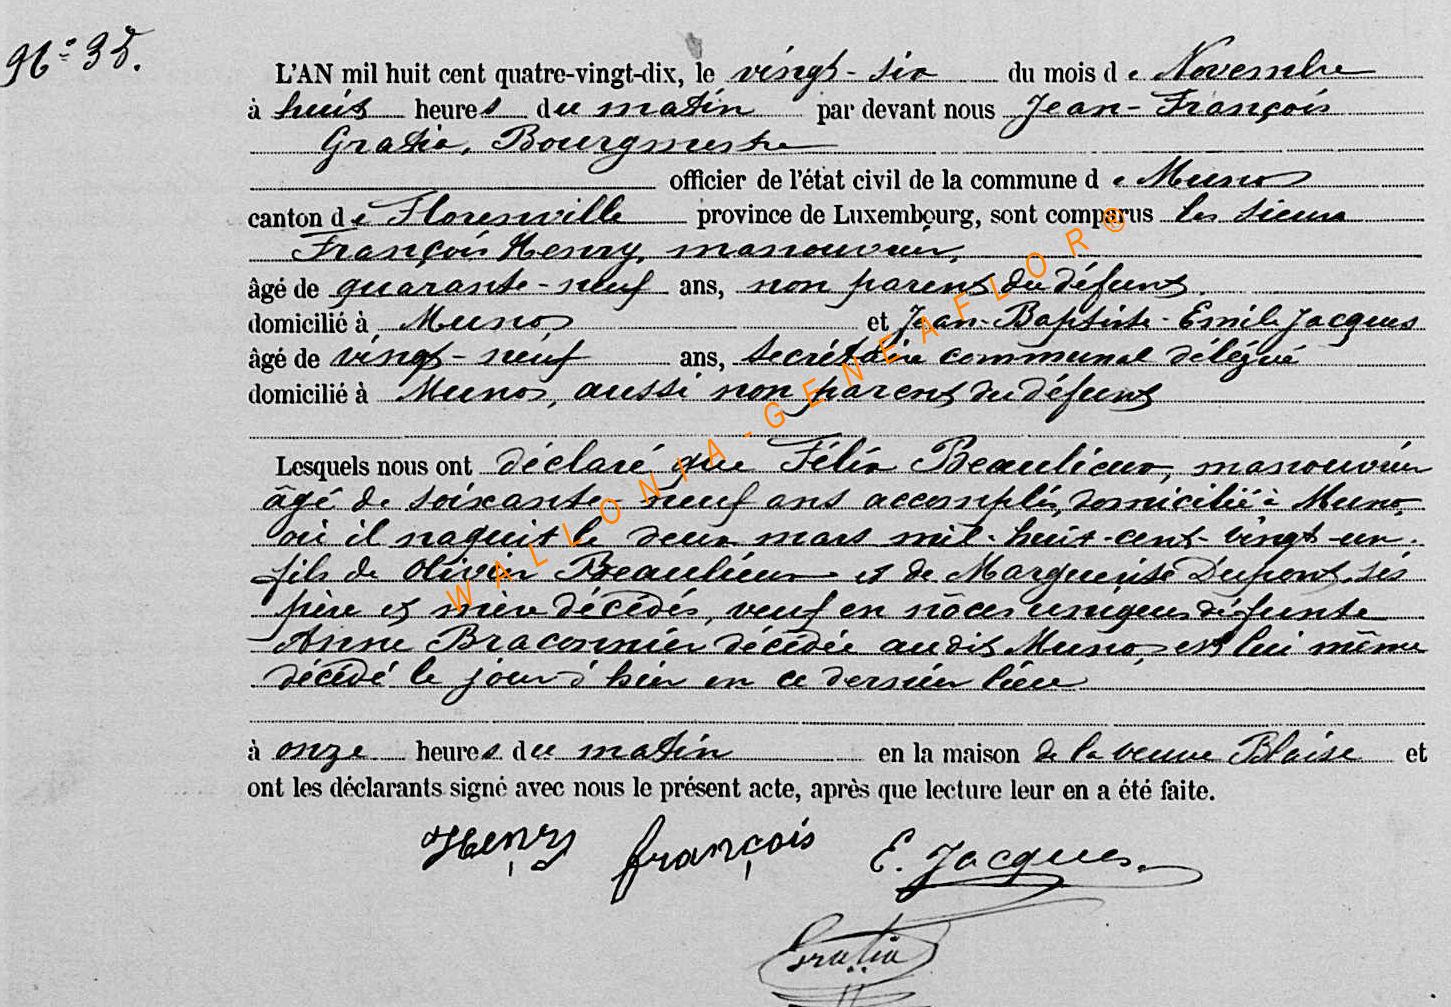 N° 35.
L'AN mil huit cent quatre-vingt-dix, le vingt-six du mois de Novembre
à huit heures du matin par devant nous Jean-François
Gratia, Bourgmestre
officier de l'état civil de la commune de Muno
canton de Florenville province de Luxembourg, sont comparus les sieurs
François Henry, manouvrier,
âgé de quarante-neuf ans, non parent du défunt.
domicilié à Muno et Jean-Baptiste-Emile Jacques
âgé de vingt-neuf ans, secrétaire communal délégué
domicilié à Muno, aussi non parent du défunt
Lesquels nous ont déclaré que Félix Beaulieux, manouvrier
âgé de soixante-neuf ans accomplis, domicilié à Muno,
où il naquit le deux mars mil-huit-cent-vingt-un.
fils de Olivier Beaulieux et de Marguerite Dupont, ses
père et mère décédés, veuf en nôces uniques défunte
Anne Braconnier décédée audit Muno, est lui même
décédé le jour d'hier en ce dernier lieu
à onze heures du matin en la maison de la veuve Blaise et
ont les déclarants signé avec nous le présent acte, après que lecture leur en a été faite.
Henry françois E. Jacques.
Gratia
WALLONIA-GENEAFLOR®